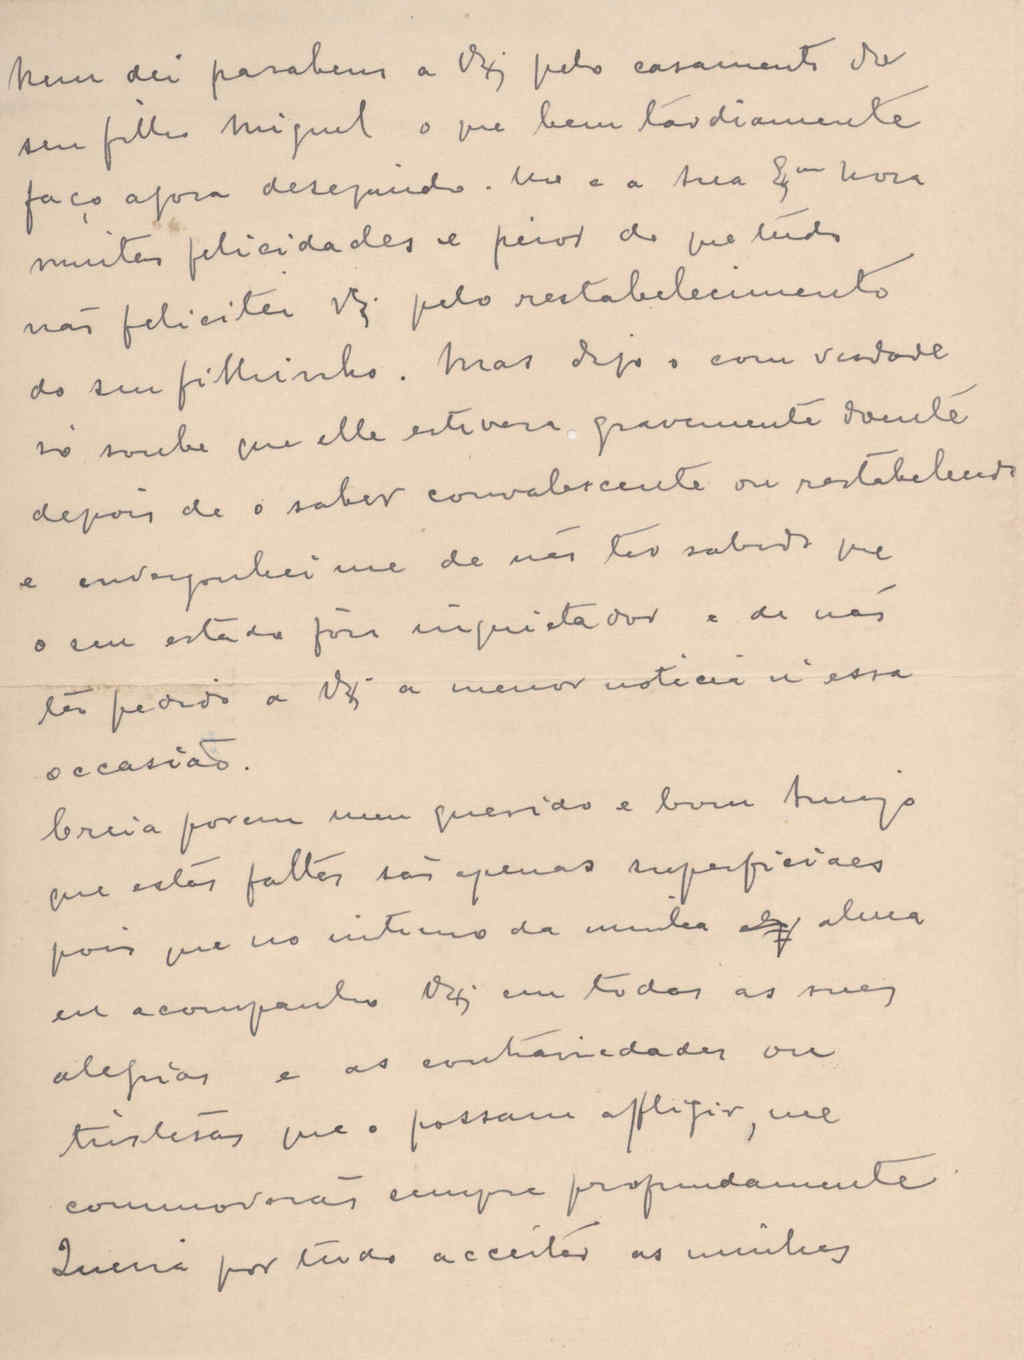 Nem dei parabens a V Exª pelo casamento do
seu filho Miguel o que bem tardiamente
faço agora desejando-lhe e a sua Exma Nora
muitas felicidades e peior do que tudo
não felicitei V Exª pelo restabelecimento
do seu filhinho. Mas digo o com verdade
só soube que elle estivera gravemente doente
depois de o saber convalescente ou restabelecido
e envergonhei me de não ter sabido que
o seu estado fôra inquietador e de não
ter pedido a V Exª a menor noticia n'essa
occasião.
Creia porem meu querido e bom Amigo
que estas faltas são apenas superficiaes
pois que no intimo da minha alma
eu acompanho V Exª em todas as suas
alegrias e as contrariedades ou
tristesas que o possam affligir, me
commoverão sempre profundamente
Queira por tudo acceitar as minhas